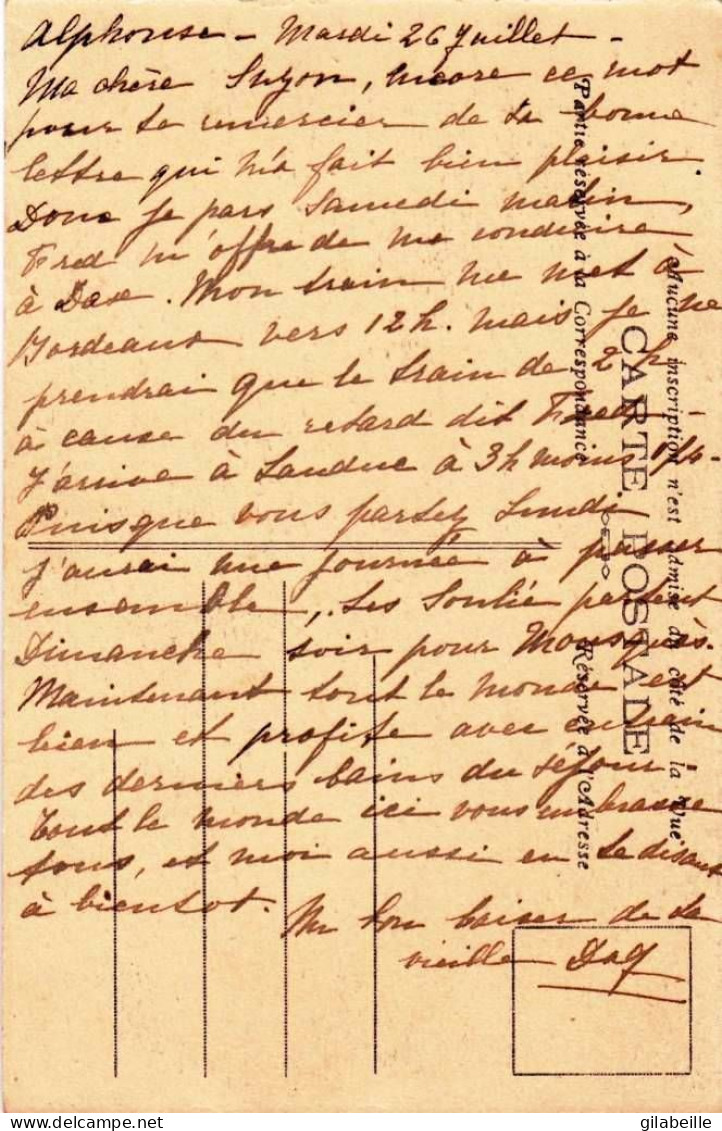 Alphonse - Mardi 26 Juillet -
Ma chère Suzon, encore ce mot
pour te remercier de ta bonne
lettre qui m'a fait bien plaisir.
Donc je pars Samedi matin,
Fred m'offre de me conduire
à Dax. Mon train me met à
Bordeaux vers 12h. mais je ne
prendrai que le train de 2h
à cause du retard dit Fred -
J'arrive à Landuc à 3h moins 1/4.
Puisque vous partez Lundi
j'aurai une journée à passer
ensemble, Les Soulié partent
Dimanche soir pour
Maintenant tout le monde est
bien et profite avec entrain
des derniers bains du séjour
Tout le monde ici vous embrasse
tous, et moi aussi en te disant
à bientot. Un bon baiser de ta
vieille
CARTE POSTALE
Aucune inscription n'est admise du côté de la Vue
Partie réservée à la Correspondance
Réservée à l'Adresse
gilabeille